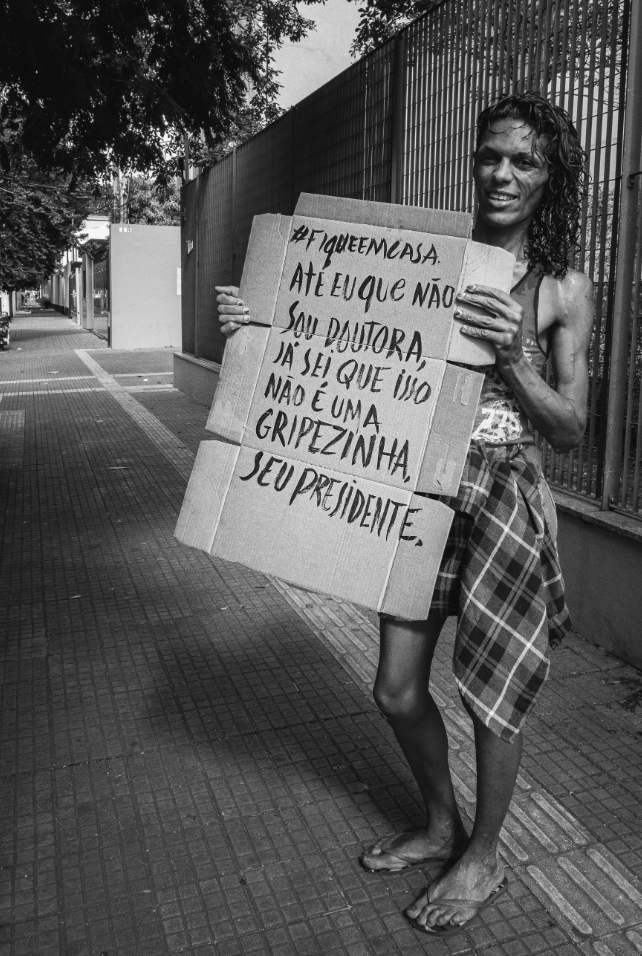 #FIQUEEMCASA.
ATÉ EU QUE NÃO
SOU DOUTORA,
JÁ SEI QUE ISSO
NÃO É UMA
GRIPEZINHA,
SEU PRESIDENTE.